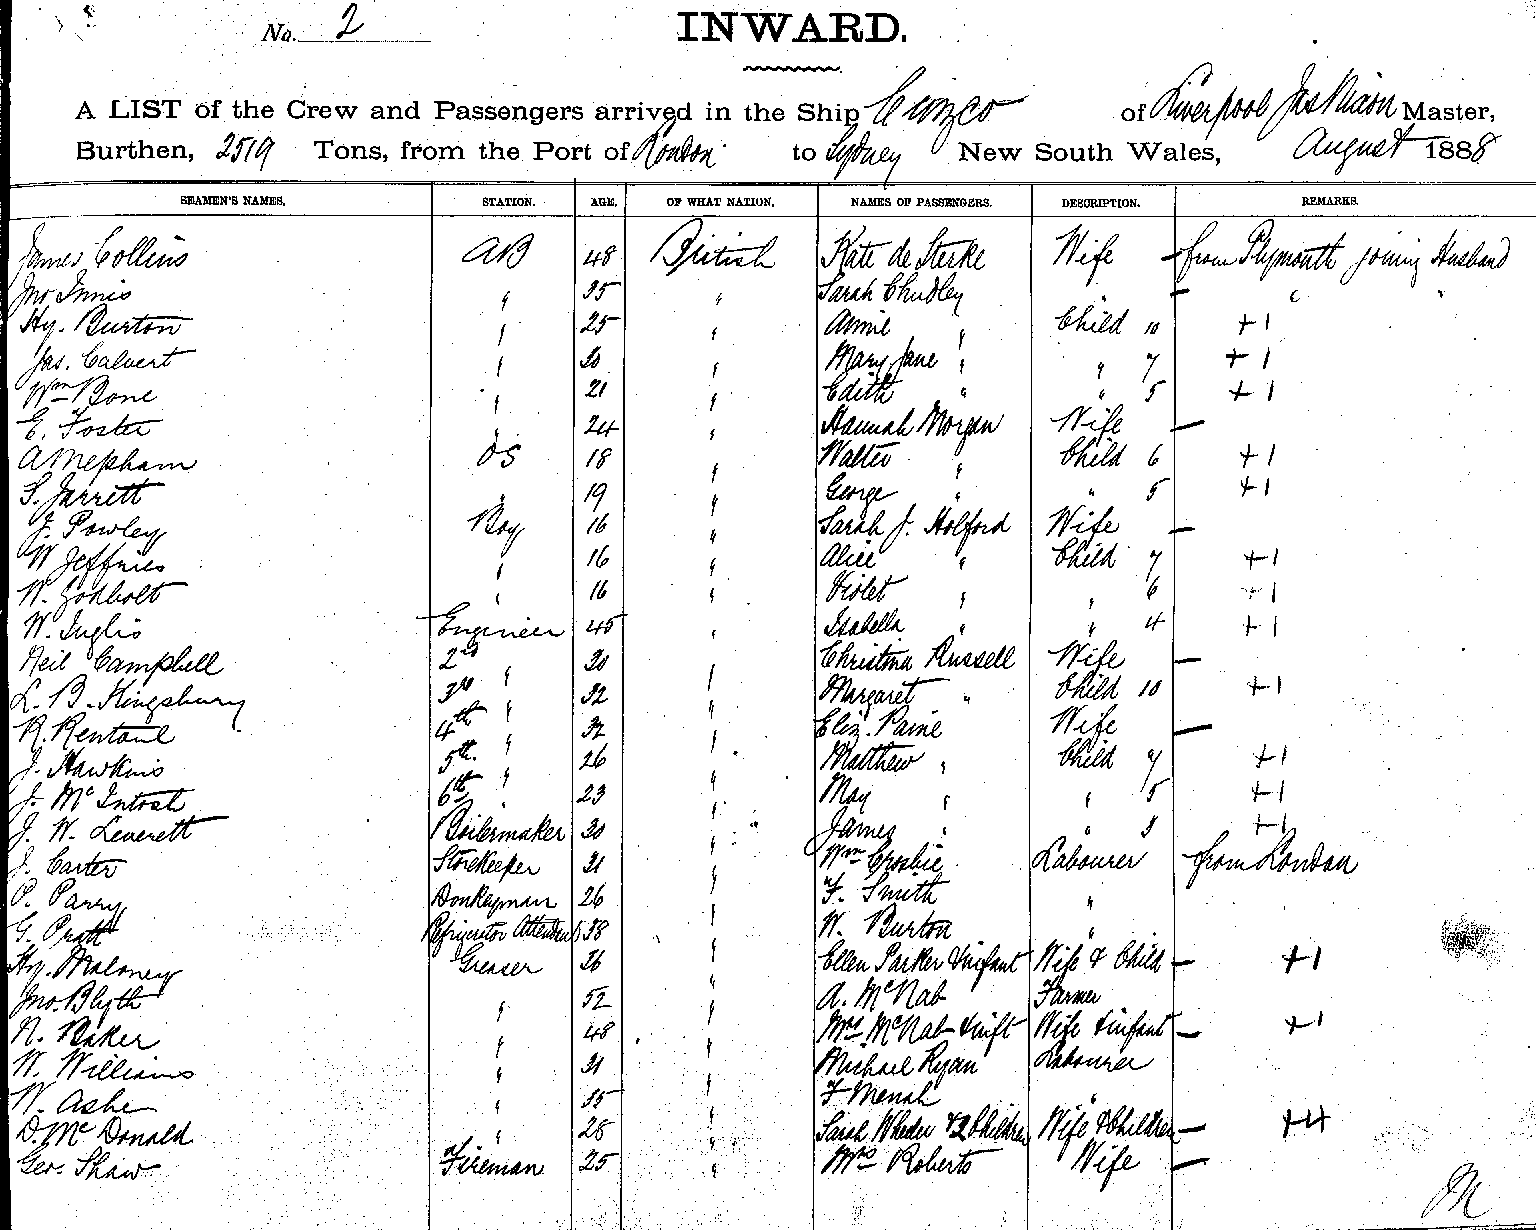 No. 2
INWARD.
A LIST of the Crew and Passengers arrived in the Ship Cuzco of Liverpool Jas Nixon Master,
Burthen, 2519 Tons, from the Port of London to Sydney New South Wales, August 1888
SEAMEN'S NAMES. STATION. AGE. OF WHAT NATION. NAMES OF PASSENGERS. DESCRIPTION. REMARKS.
James Collins AB 48 British Kate de Sterke Wife — from Plymouth joining Husband
Jno Innis " 35 " Sarah Chudley " — " "
Hy. Burton " 25 " Annie " Child 10 +1
Jas. Calvert " 30 " Mary Jane " " 7 +1
Wm Bone " 21 " Edith " " 5 +1
E. Foster " 24 " Hannah Morgan Wife —
A Mepham OS 18 " Walter " Child 6 +1
S. Jarrett " 19 " George " " 5 +1
J. Powley Boy 16 " Sarah J. Holford Wife —
W Jeffries " 16 " Alice " Child 7 +1
W. Godbolt " 16 " Violet " " 6 +1
W. Inglis Engineer 45 " Isabella " " 4 +1
Neil Campbell 2nd " 30 " Christina Russell Wife —
L. B. Kingsbury 3rd " 32 " Margaret " Child 10 +1
R. Rentoul 4th " 32 " Eliz. Paine Wife —
J. Hawkins 5th " 26 " Matthew " Child 7 +1
J. McIntosh 6th " 23 " May " " 5 +1
J. W. Leverett Boilermaker 30 " James " " 3 +1
J. Carter Storekeeper 31 " Wm Crosbie Labourer from London
P. Parry Donkeyman 26 " F. Smith "
G. Pratt Refrigerator Attendant 38 " W. Burton "
Hy. Maloney Greaser 36 " Ellen Parker & infant Wife & Child — +1
Jno. Blyth " 52 " A. McNab Farmer
N. Baker " 48 " Mrs. McNab & inft Wife & infant — +1
W. Williams " 31 " Michael Ryan Labourer
W. Ashe " 35 " F "
D. McDonald " 28 " Sarah & 2 Children Wife & Children — +4
Geo. Shaw Fireman 25 " Mrs Roberts Wife —